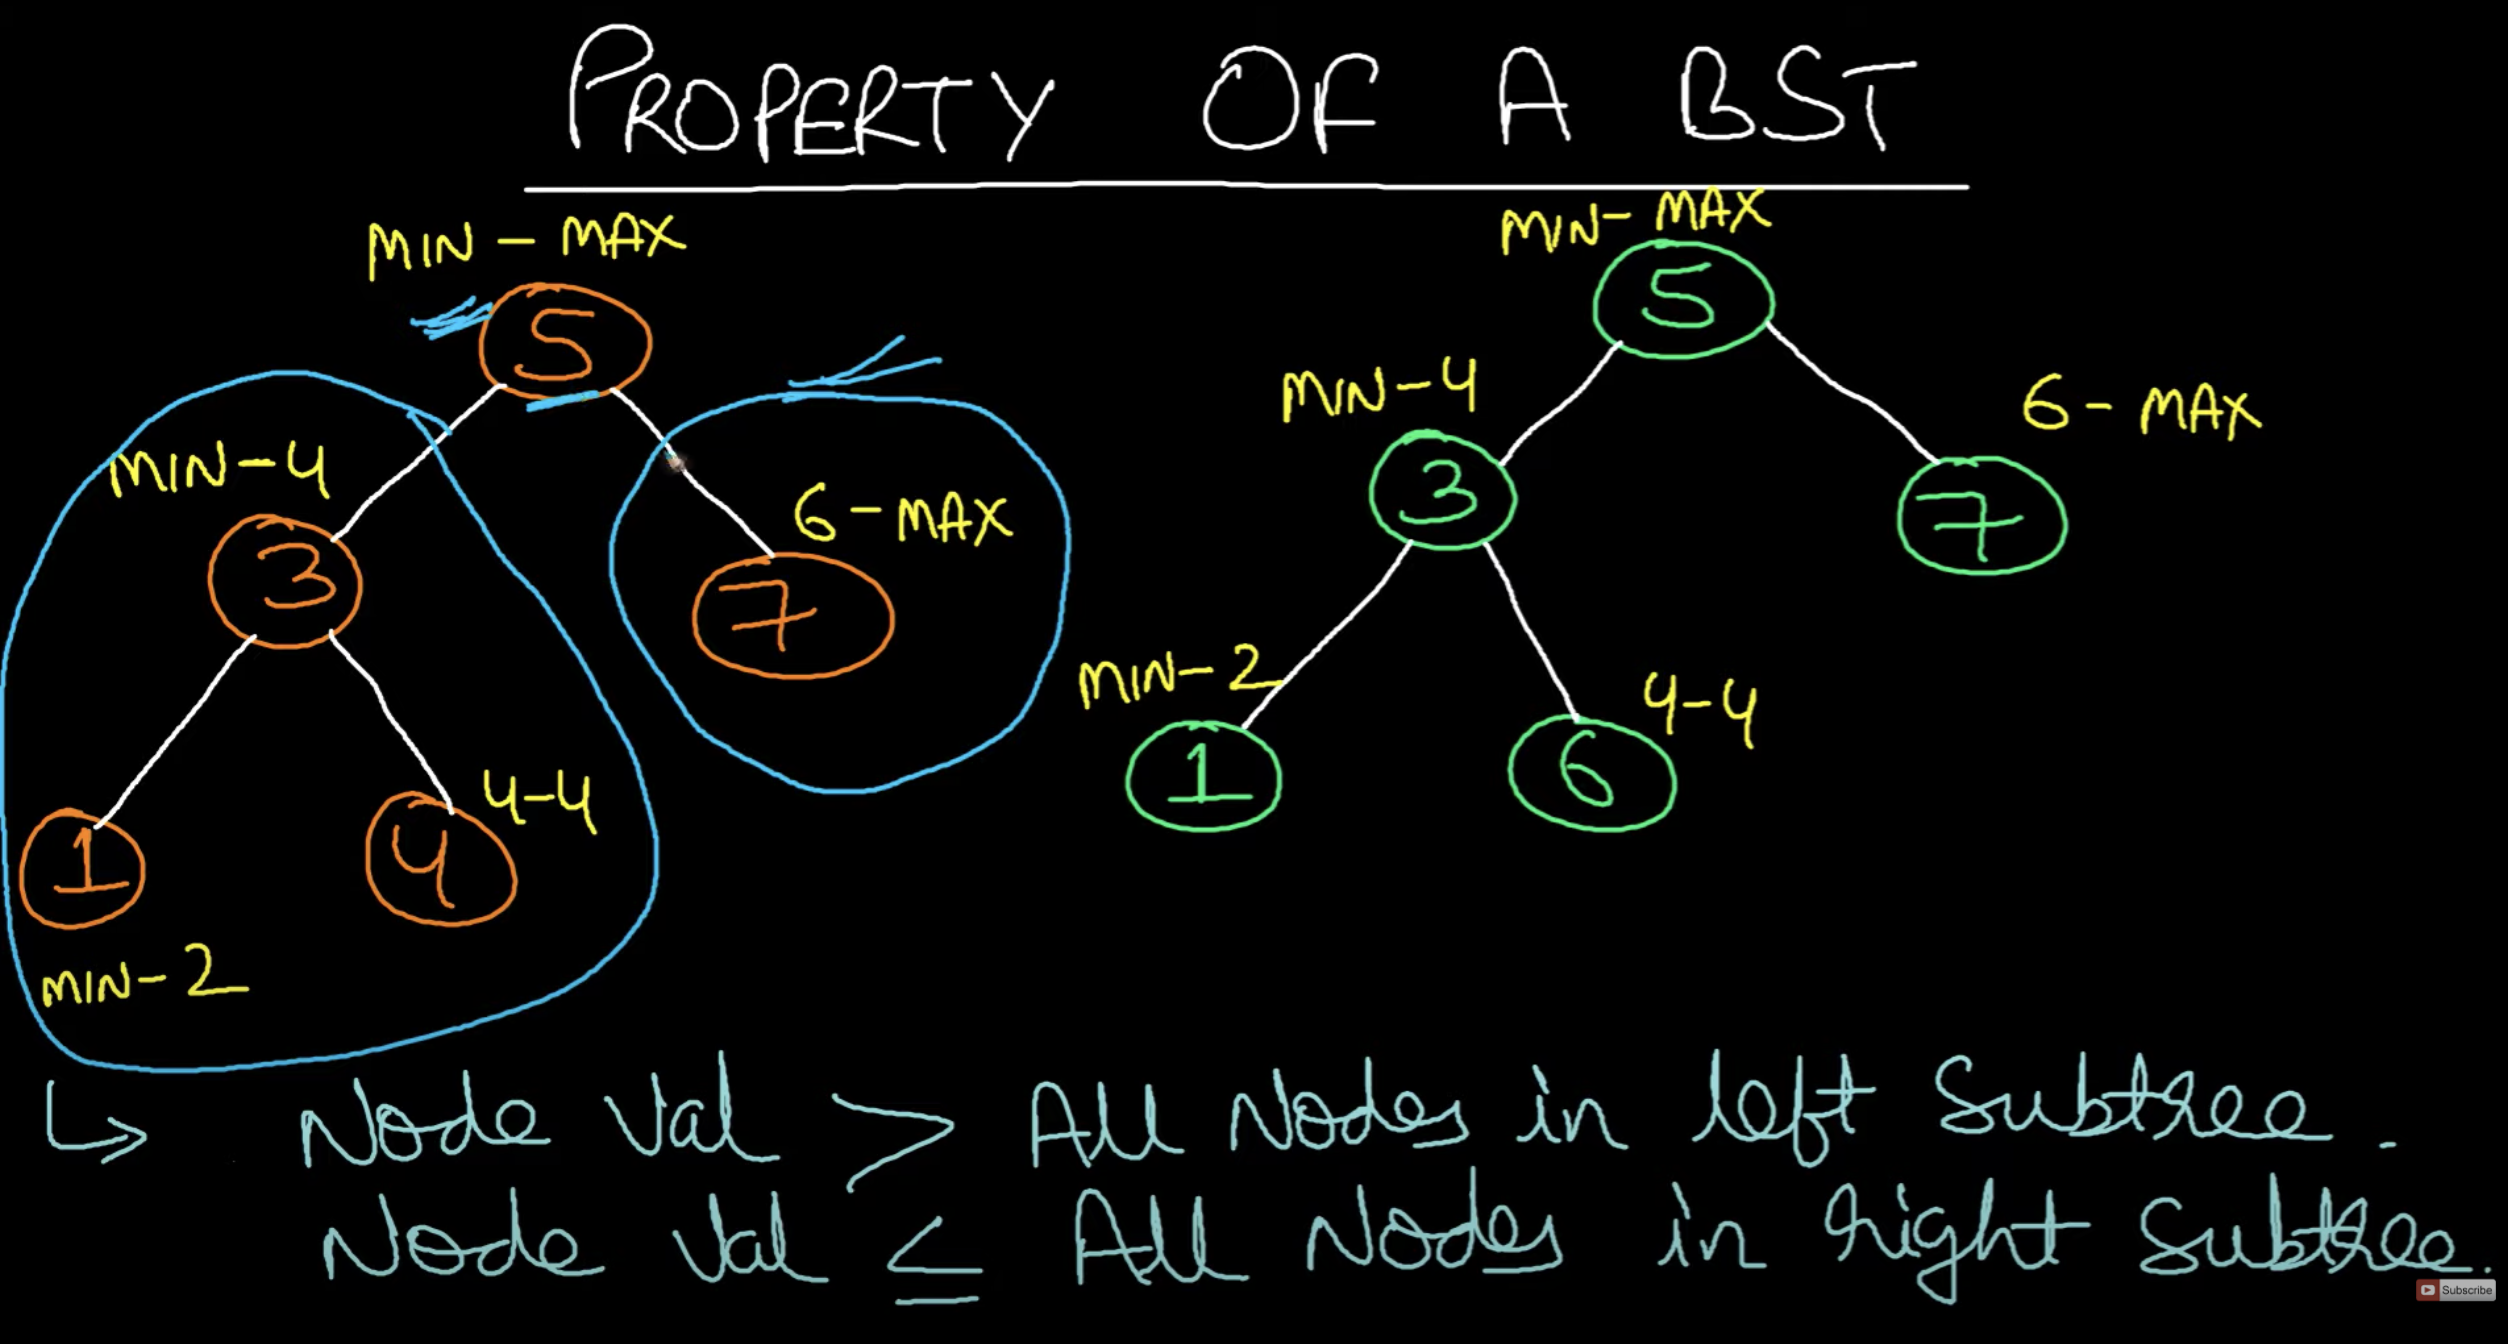 PROPERTY OF A BST
MIN - MAX
5
MIN-4
3
6 - MAX
7
1
MIN-2
4
4-4
MIN- MAX
5
MIN-4
3
6 - MAX
7
MIN-2
1
4-4
6
↳ Node Val > All Nodes in left Subtree.
Node Val ≤ All Nodes in right Subtree.
Subscribe